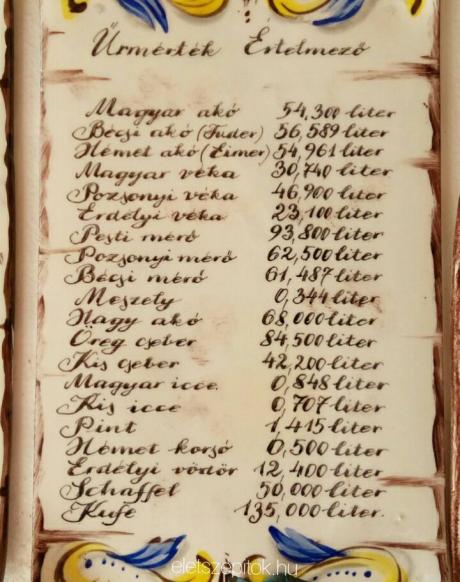 Űrmérték Értelmező
Magyar akó 54,300 liter
Bécsi akó (Fuder) 56,589 liter
Német akó (Eimer) 54,961 liter
Magyar véka 30,740 liter
Pozsonyi véka 46,900 liter
Erdélyi véka 23,100 liter
Pesti mérő 93,800 liter
Pozsonyi mérő 62,500 liter
Bécsi mérő 61,487 liter
Meszely 0,344 liter
Nagy akó 68,000 liter
Öreg cseber 84,500 liter
Kis cseber 42,200 liter
Magyar icce 0,848 liter
Kis icce 0,707 liter
Pint 1,415 liter
Német korsó 0,500 liter
Erdélyi vödör 12,400 liter
Schaffel 50,000 liter
Kufe 135,000 liter.
eletszepitok.hu